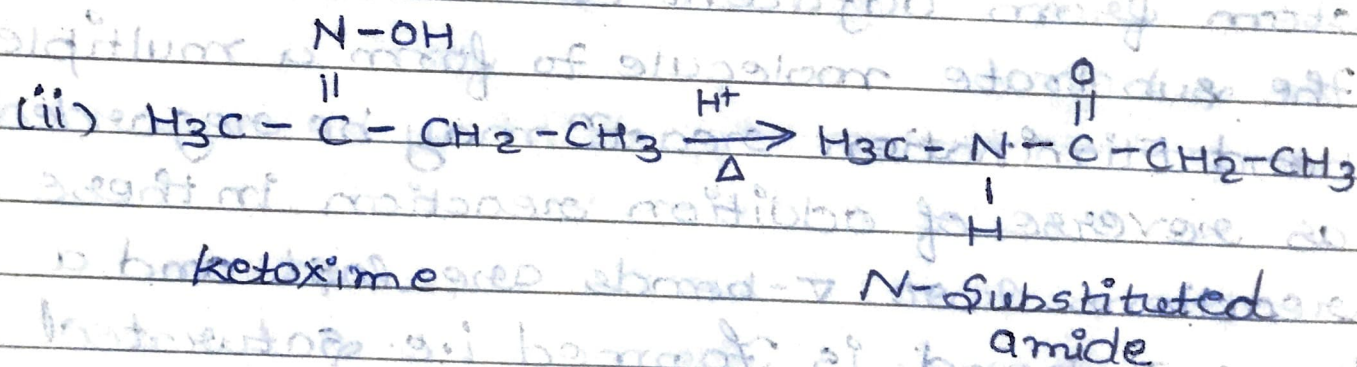 N-OH
O
||
(ii) H3C - C - CH2 - CH3 H+ → Δ H3C - N - C - CH2 - CH3
||
|
H
ketoxime
N-Substituted
amide